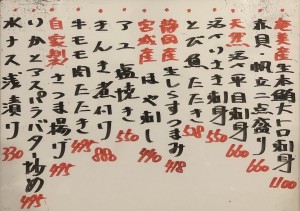 奄美産 生本鮪大トロ刺身 1100
赤貝・帆立二点盛り 660
天然 活〆平目刺身 660
刺身 550
とび魚たたき 528
静岡産 生しらすつまみ 418
宮城産 ほや刺し 440
アユ塩焼き 550
きんき煮付け 880
牛モモ肉たたき 495
自家製 さつま揚げ 495
いかとアスパラバター炒め 495
水ナス浅漬け 330